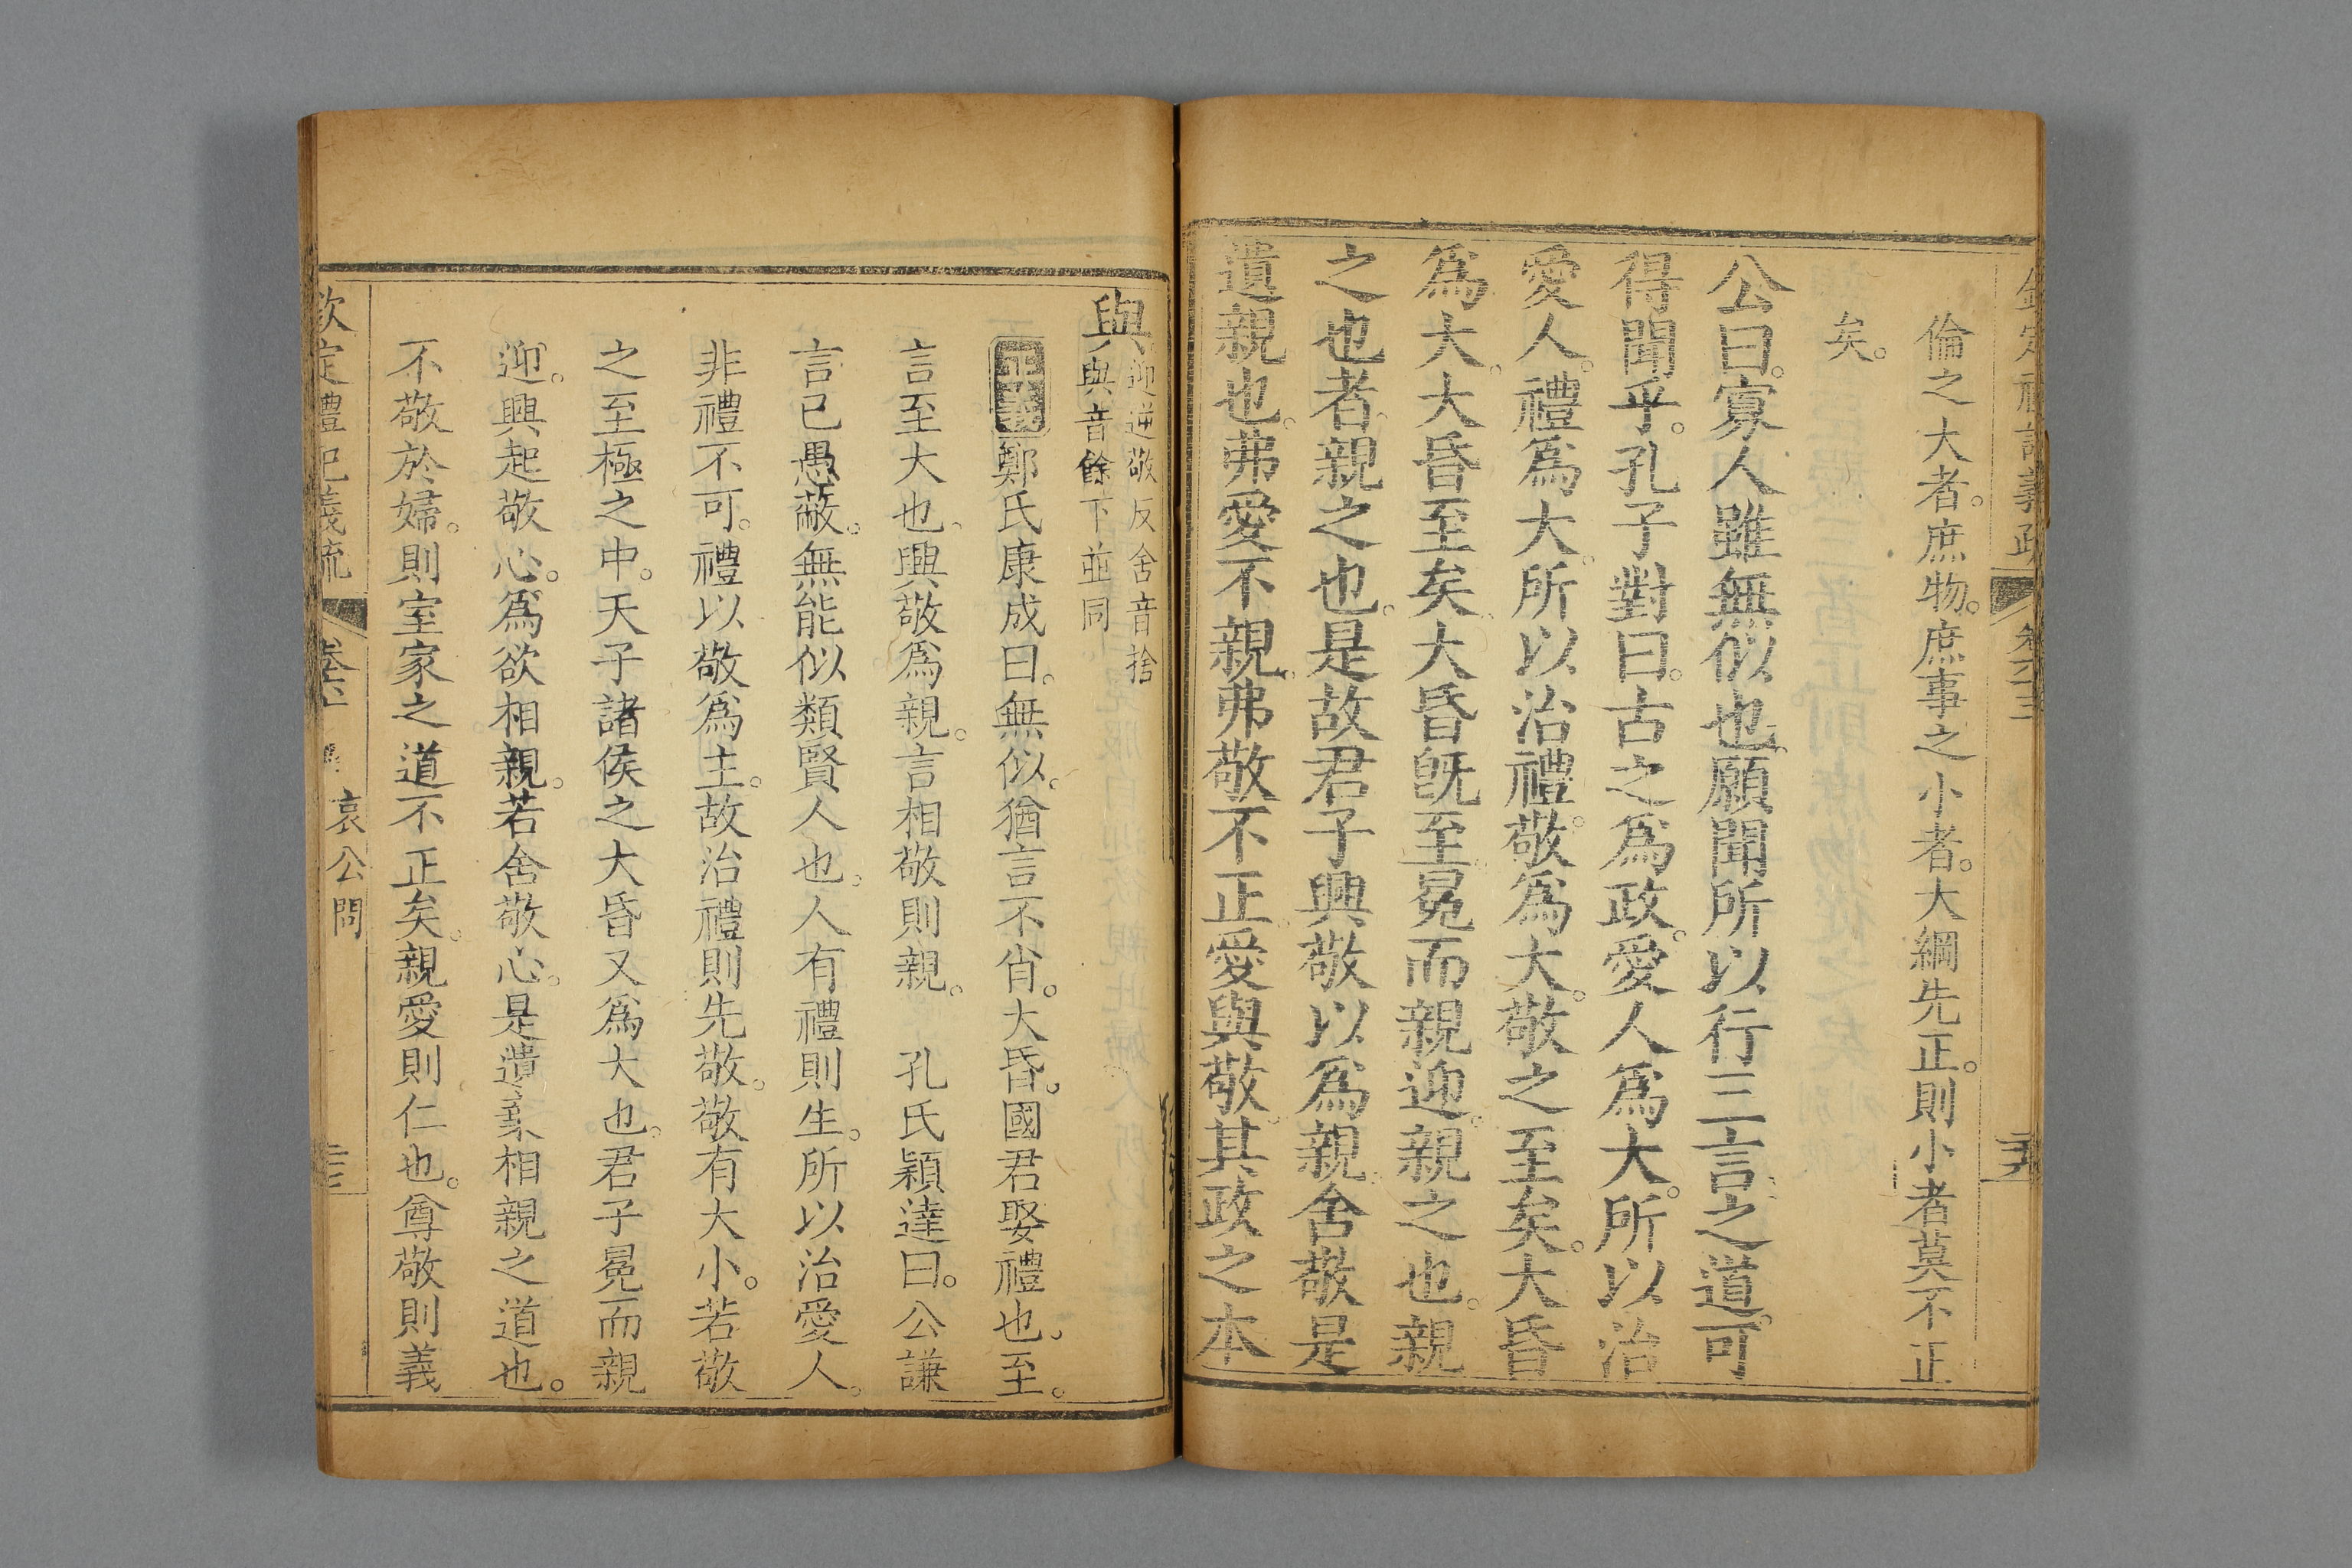 倫之大者。庶物。庶事之小者。大綱先正。則小者莫不正
矣。
公曰。寡人雖無似也。願聞所以行三言之道。可
得聞乎。孔子對曰。古之爲政。愛人爲大。所以治
愛人。禮爲大。所以治禮。敬爲大。敬之至矣。大昏
爲大。大昏至矣。大昏旣至。冕而親迎。親之也。親
之也者。親之也。是故君子興敬以爲親。舍敬是
遺親也。弗愛不親。弗敬不正。愛與敬。其政之本
與
迎逆敬反舍音捨
與音餘下並同
正義鄭氏康成曰。無似。猶言不肖。大昏。國君娶禮也。至。
言至大也。興敬爲親。言相敬則親。 孔氏穎達曰。公謙
言已愚蔽。無能似類賢人也。人有禮則生。所以治愛人。
非禮不可。禮以敬爲主。故治禮則先敬。敬有大小。若敬
之至極之中。天子諸侯之大昏又爲大也。君子冕而親
迎。興起敬心。爲欲相親。若舍敬心。是遺相親之道也。
不敬於婦。則室家之道不正矣。親愛則仁也。尊敬則義
欽定禮記義疏
哀公問